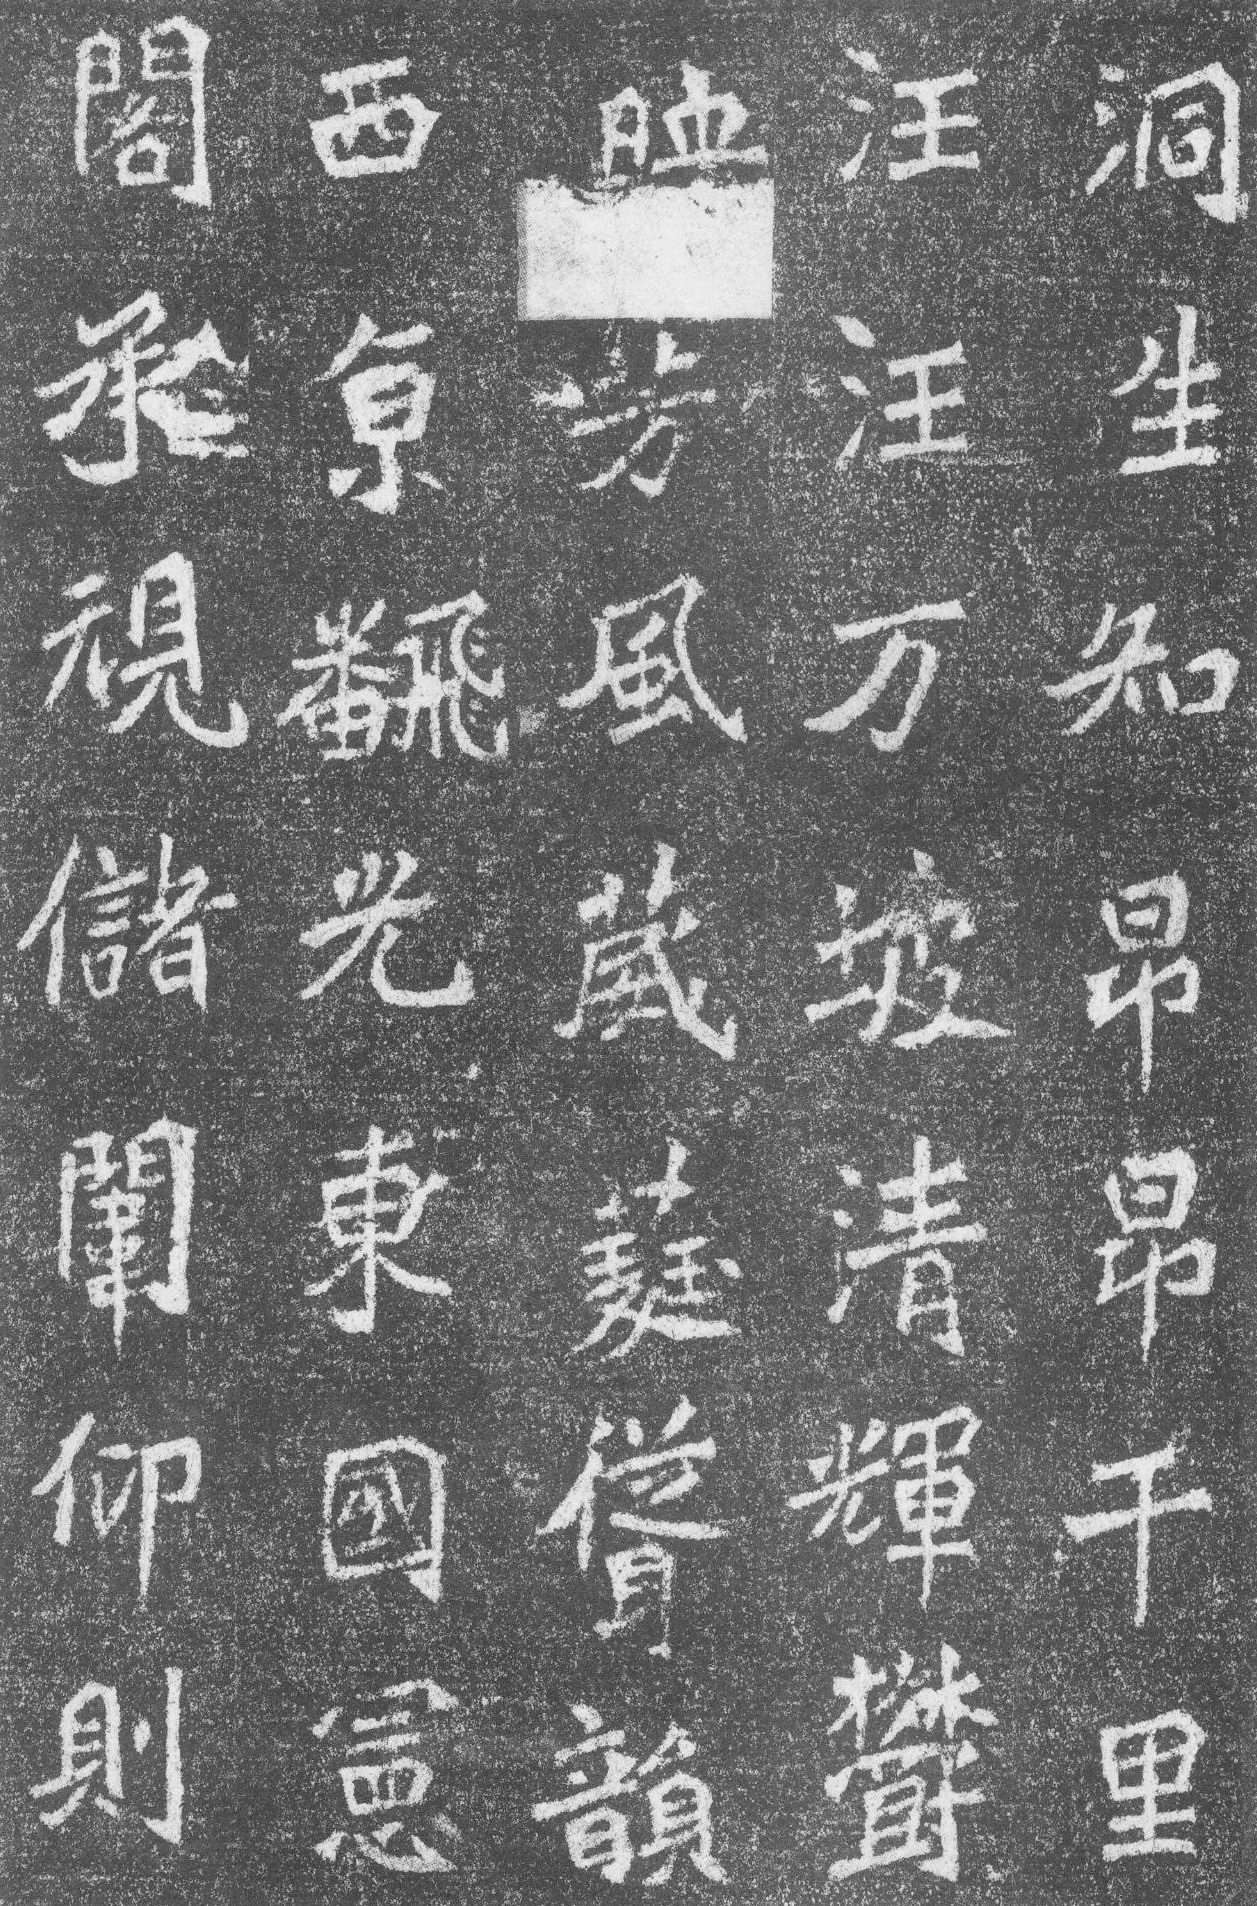 洞生知昂昂千里
汪汪万坡清輝鬱
映芳風葳蕤聳韻
西京飜光東國憲
閤承視儲闈仰則